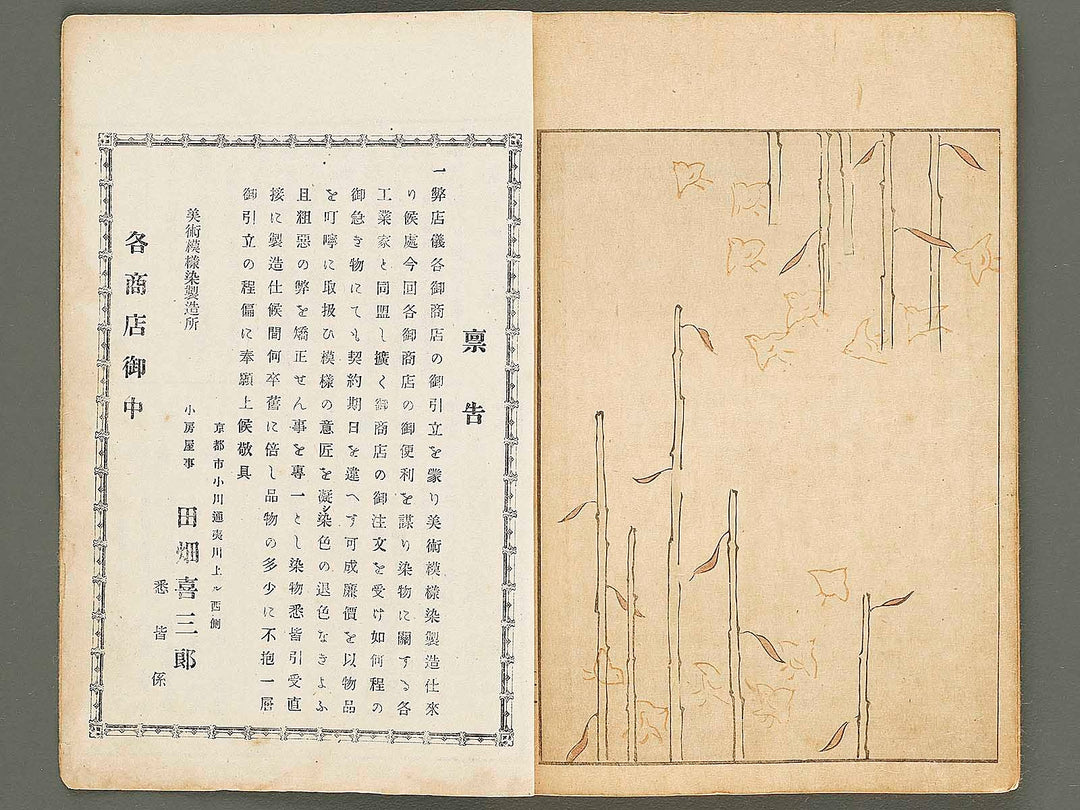 稟告
一弊店儀各御商店の御引立を蒙り美術模様染製造仕來
り候處今回各御商店の御便利を謀り染物に關する各
工業家と同盟し擴く御商店の御注文を受け如何程の
御急ぎ物にても契約期日を違へず可成廉價を以物品
を叮嚀に取扱ひ模様の意匠を凝シ染色の退色なきよふ
且粗惡の弊を矯正せん事を專一とし染物悉皆引受直
接に製造仕候間何卒舊に倍し品物の多少に不抱一層
御引立の程偏に奉願上候敬具
京都市小川通夷川上ル西側
美術模様染製造所
小房屋事 田畑喜三郎
悉皆係
各商店御中